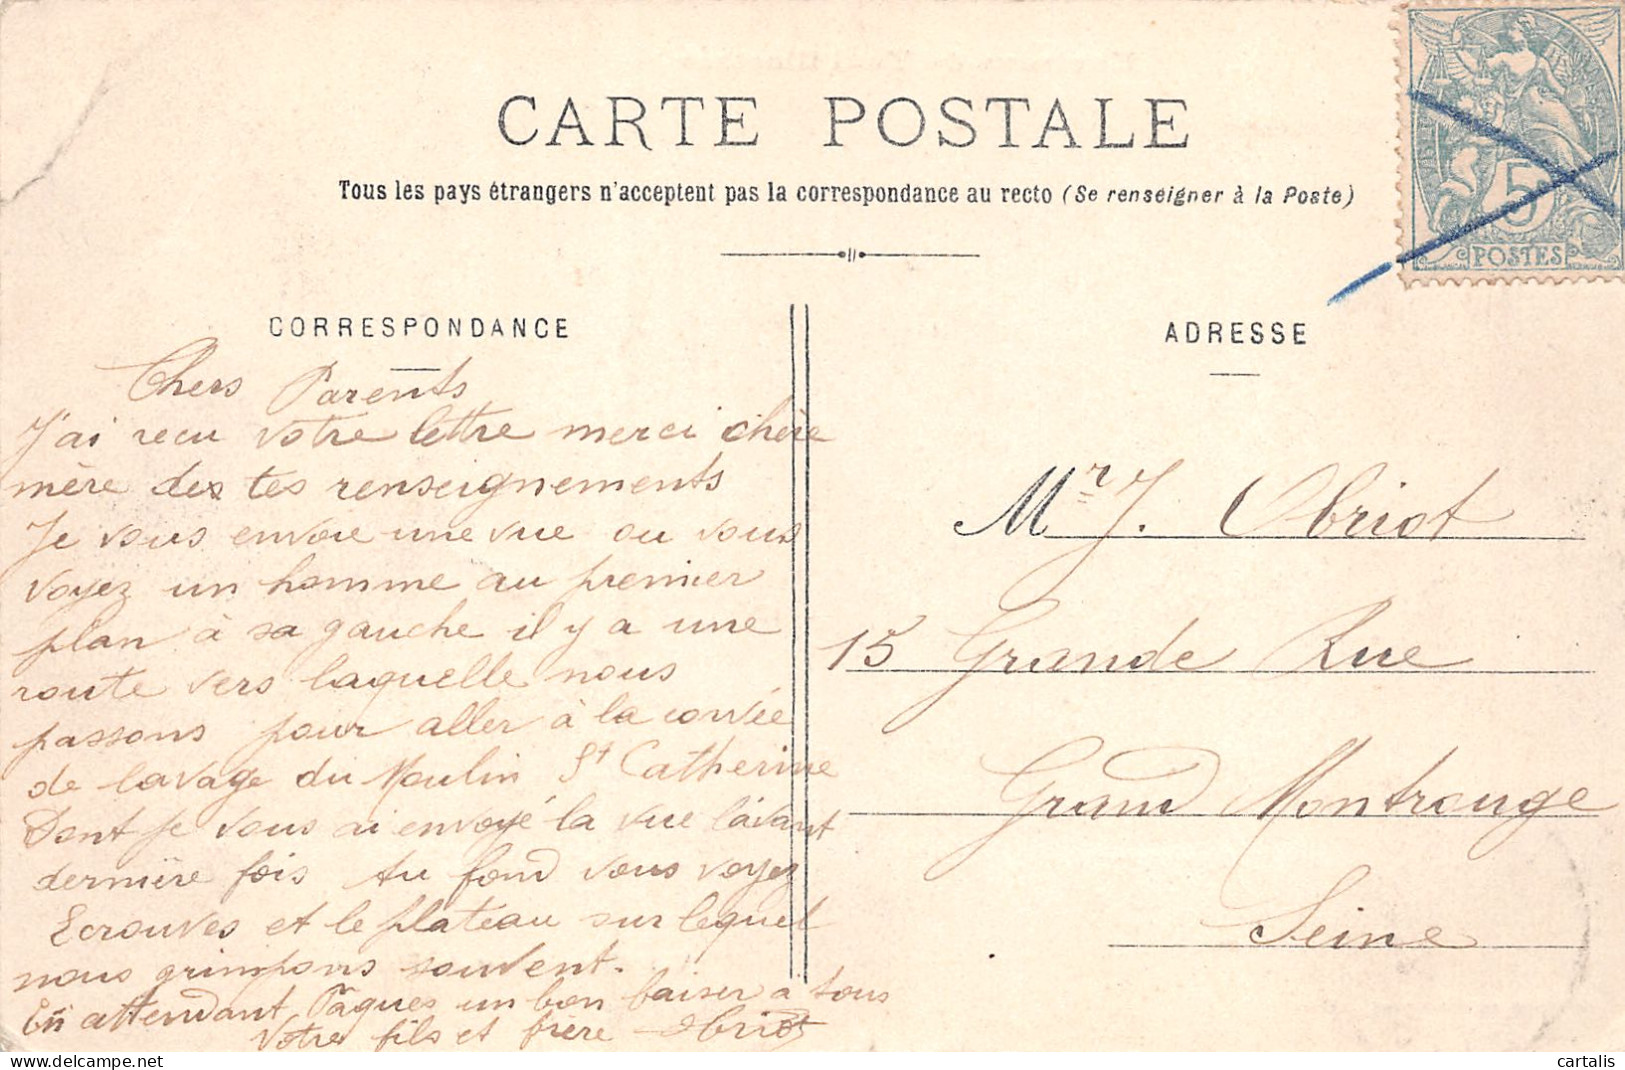 CARTE POSTALE
Tous les pays étrangers n'acceptent pas la correspondance au recto (Se renseigner à la Poste)
5
POSTES
CORRESPONDANCE
Chers Parents
J'ai recu votre lettre merci chère
mère des tes renseignements
Je vous envoie une vue ou vous
voyez un homme au premier
plan à sa gauche il y a une
route vers laquelle nous
passons pour aller à la corvée
de lavage du Moulin St Catherine
Dont je vous ai envoyé la vue l'avant
dernière fois Au fond vous voyez
Ecrouves et le plateau sur lequel
nous grimpons souvent.
En attendant Pâques un bon baiser à tous
Votre fils et frère Obriot
ADRESSE
Mr J. Obriot
15 Grande Rue
Grand Montrouge
Seine
cartalis
www.delcampe.net